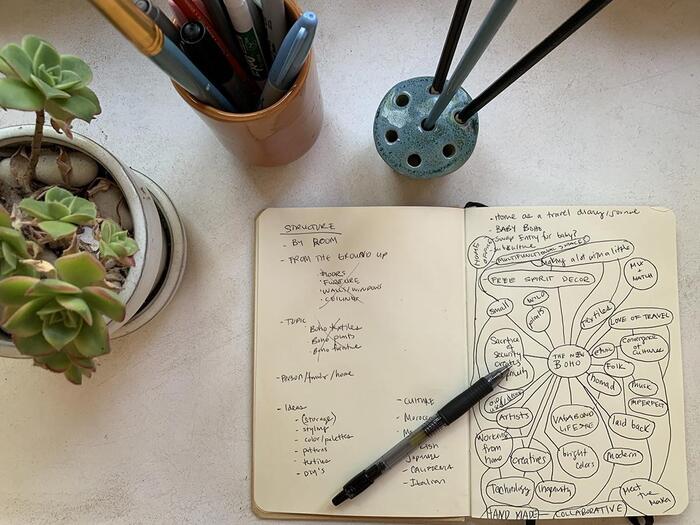 STRUCTURE
- BY ROOM
- FROM THE GROUND UP
- FLOORS
- FURNITURE
- WALLS/WINDOWS
- CEILINGS
- TOPIC
- Boho textiles
- Boho plants
- Boho
- Person/family/home
- Ideas
- (storage)
- styling
- color/palettes
- patterns
- textiles
- DIY's
- CULTURE
- Moroccan
- Japanese
- CALIFORNIA
- Italian
- Home as a travel diary/
- BABY BOHO
Swap Entry for baby?
- MULTIFUNCTIONAL SPACES
making a lot from a little
HOME OFFICE
- FREE SPIRIT DECOR
MIX + MATCH
small
WILD
plants
textiles
LOVE OF TRAVEL
Sacrifice of security creates
THE NEW BOHO
ethnic
Convergence of cultures
FOLK
nomad
music
IMPERFECT
ARTISTS
VAGABOND LIFE
laid back
Working from home
creatives
bright colors
modern
Technology
Ingenuity
Meet the Maker
HAND MADE
COLLABORATIVE